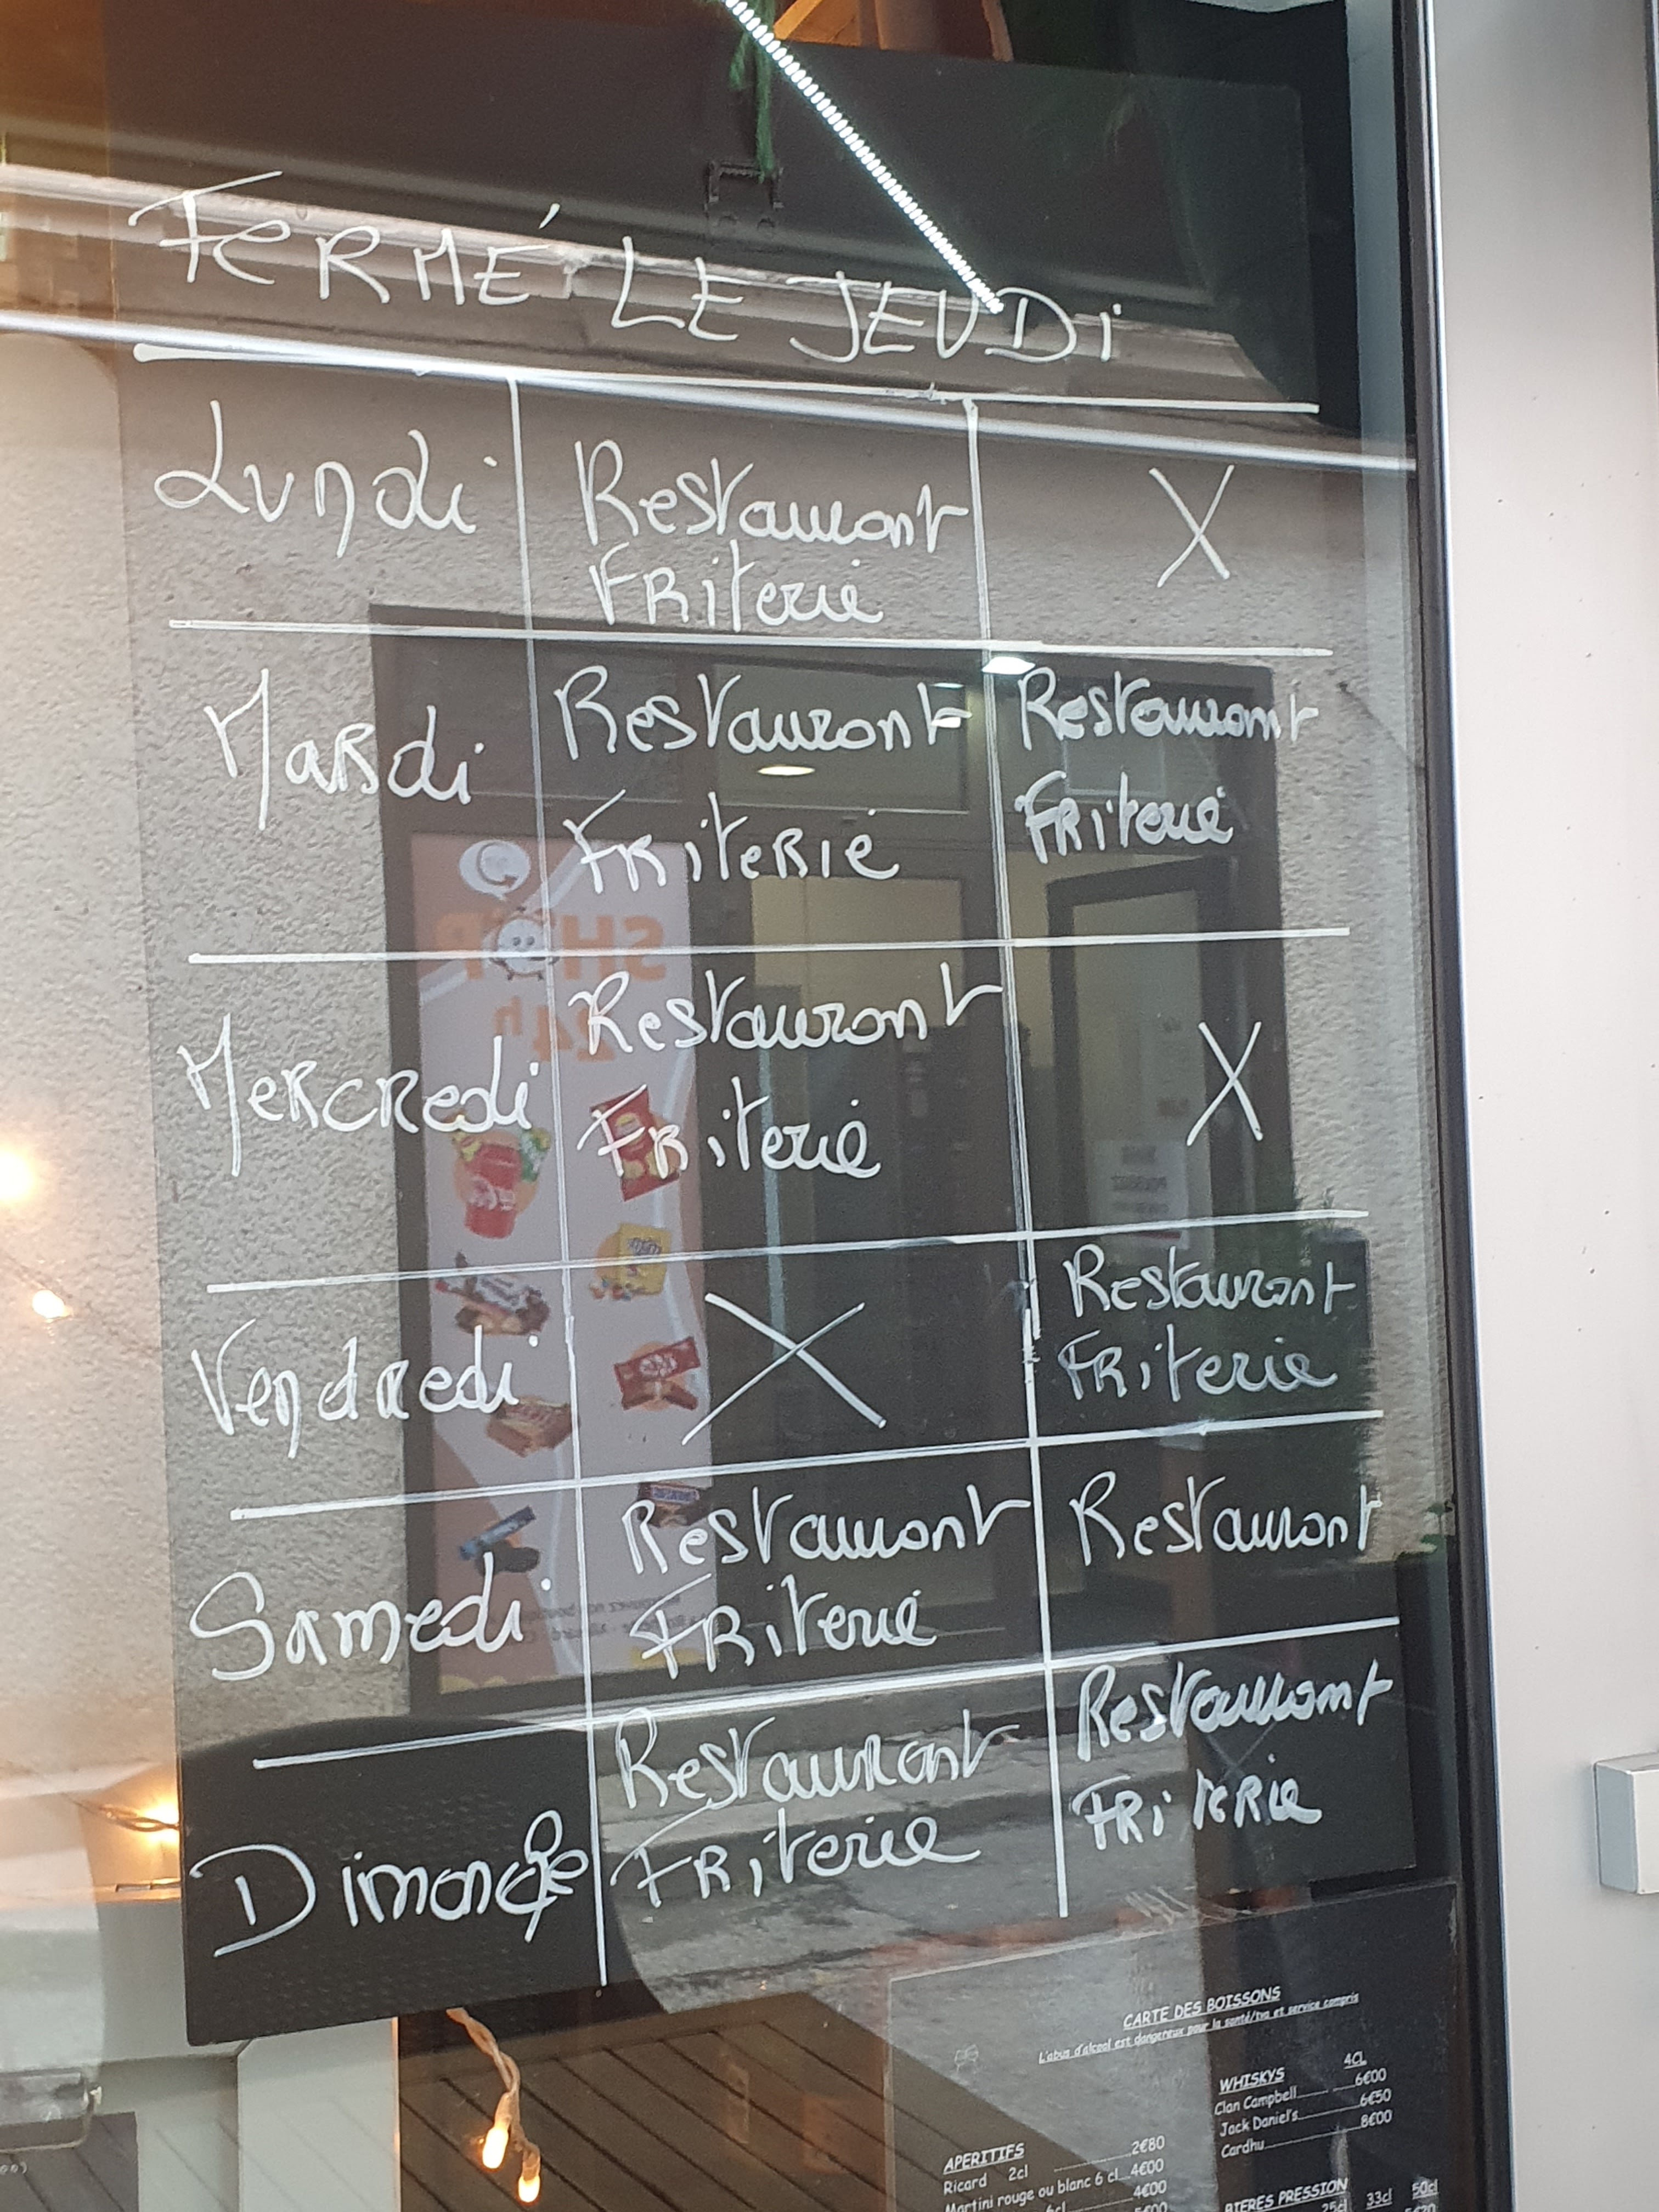 FERMÉ LE JEUDI
Lundi
Restaurant
Friterie
X
Mardi
Restaurant
Friterie
Restaurant
Friterie
Mercredi
Restaurant
Friterie
X
Vendredi
X
Restaurant
Friterie
Samedi
Restaurant
Friterie
Restaurant
Dimanche
Restaurant
Friterie
Restaurant
Friterie
SHOP
24h
CARTE DES BOISSONS
L'abus d'alcool est dangereux pour la santé/tva et service compris
WHISKYS 4CL
Clan Campbell 6€00
Jack Daniel's 6€50
Cardhu 8€00
APERITIFS
Ricard 2cl 2€80
Martini rouge ou blanc 6 cl 4€00
6cl 4€00
5€00
BIERES PRESSION
25cl 33cl 50cl